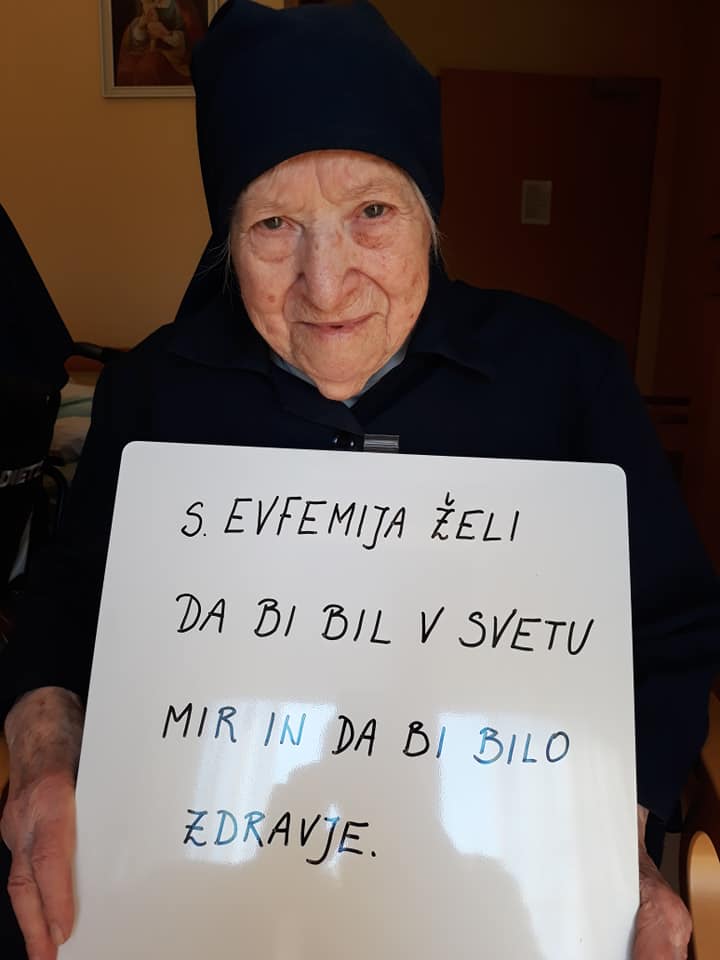 S. EVFEMIJA ŽELI
DA BI BIL V SVETU
MIR IN DA BI BILO
ZDRAVJE.